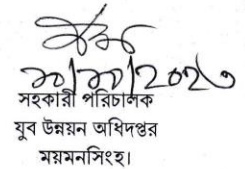 ১০/১০/২০২৩
সহকারী পরিচালক
যুব উন্নয়ন অধিদপ্তর
ময়মনসিংহ।